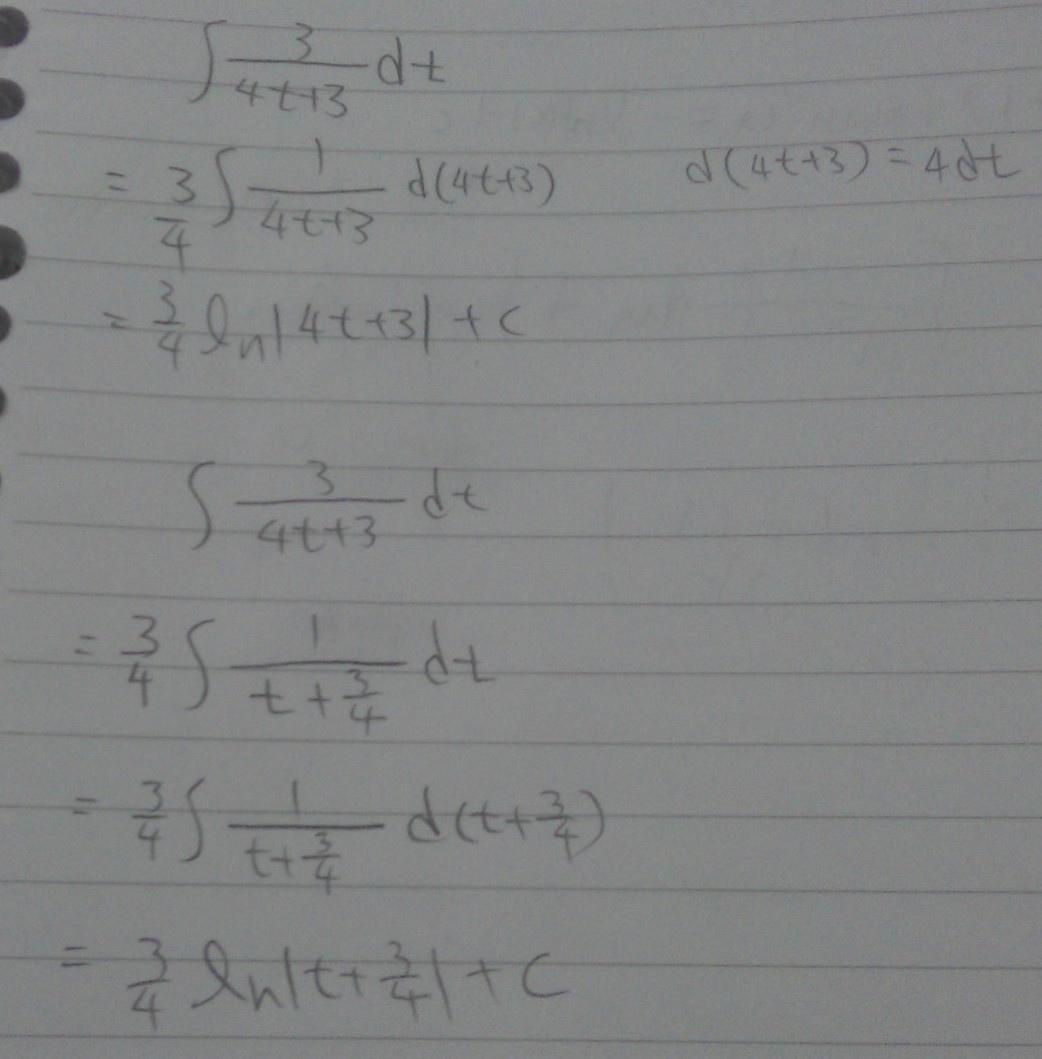 ∫ 3/(4t+3) dt
= 3/4 ∫ 1/(4t+3) d(4t+3)    d(4t+3) = 4dt
= 3/4 ln|4t+3| + c
∫ 3/(4t+3) dt
= 3/4 ∫ 1/(t + 3/4) dt
= 3/4 ∫ 1/(t+3/4) d(t+3/4)
= 3/4 ln|t+3/4| + C